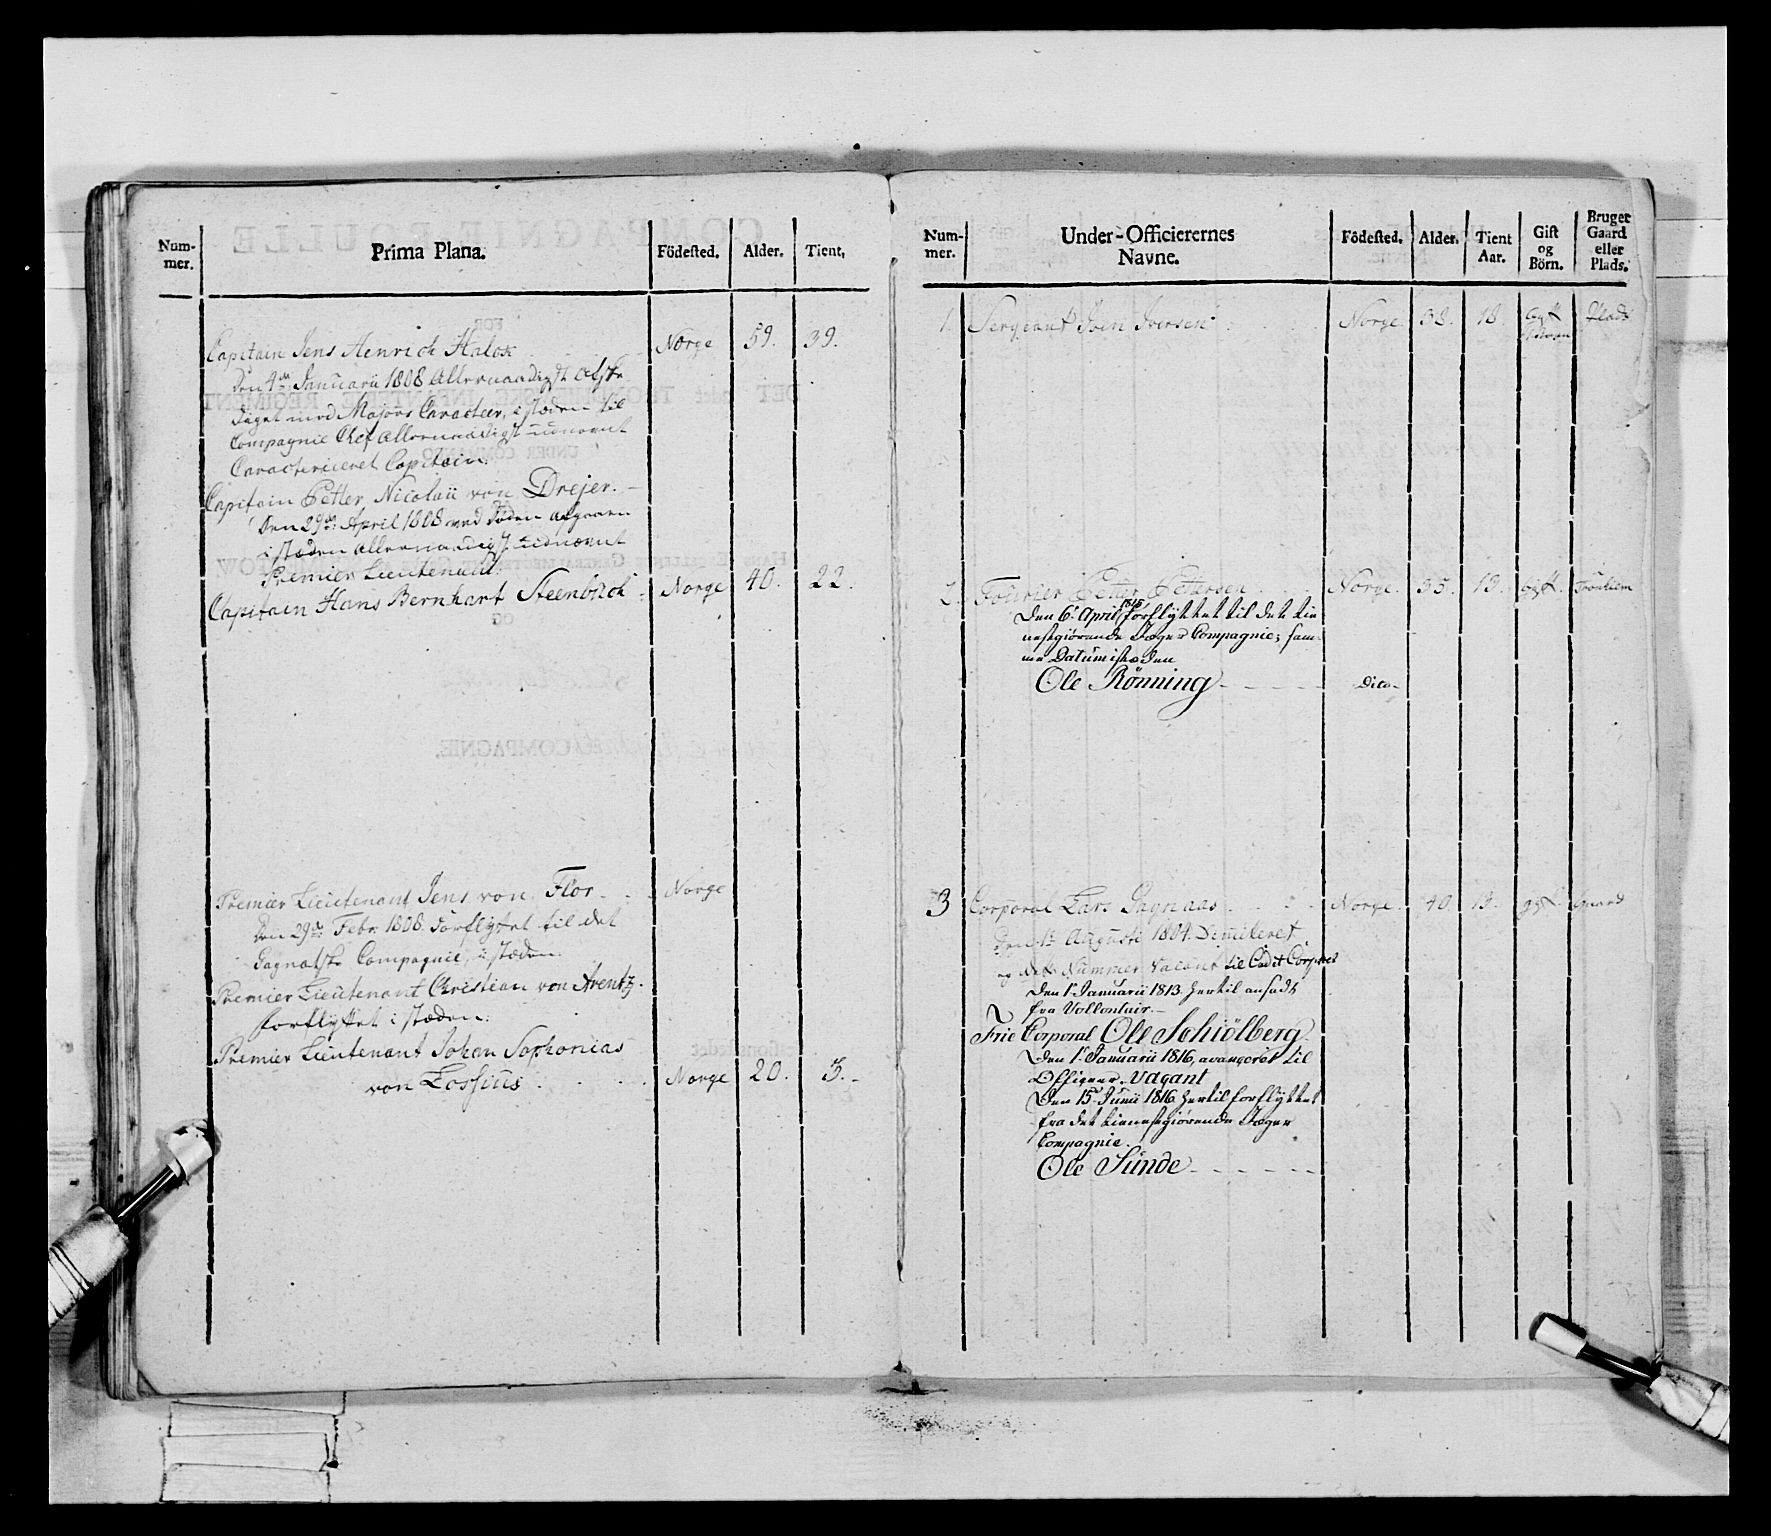 Num-
mer.
Prima Plana.
Födested.
Alder.
Tient,
Capitain Jens Henrich Halck
Norge
59.
39.
den 4de Januarii 1808 Allernaadigst afske
diget med Majors Caracteer, i stæden til
Compagnie Chef Allernaadigst udnævnt
Caracteriseret Capitain.
Capitain Petter Nicolaii von Drejer.
Den 29de April 1808 ved Døden afgaaen
i stæden allernaadigst udnævnt
Premier Lieutenant
Capitain Hans Bernhart Steenbuch
Norge
40.
22.
Premier Lieutenant Jens von Flor
Norge
Den 29de Febr. 1808. Forflyttet til det
Compagnie, i stæden
Premier Lieutenant Christian von Arentz
forflyttet i stæden.
Premier Lieutenant Johan Sophonias
von Lossius
Norge
20.
3.
Num-
mer.
Under-Officierernes
Navne.
Födested.
Alder.
Tient
Aar.
Gift
og
Börn.
Bruger
Gaard
eller
Plads.
1.
Sergeant Iven Iversen
Norge.
38.
18.
Gift
Plads
2.
Fourier Petter Pettersen
Norge.
35.
13.
Gift.
Tronhiem
Den 6t April 1815 forflyttet til det tie
nestgiørende Jæger Compagnie; sam-
me Datum i stæden
Ole Rönning
Dito
3
Corporal Lars Dagnaas
Norge.
40.
13.
gift.
Gaard
Den 1te Augusti 1804. Dimiteret
og dette Nummer Vacant til Cadet Corpset
Den 1t Januarii 1813 hertil ansadt
fra Vollontair.
Frie Corporal Ole Schiölberg
Den 1t Januarii 1816, avanceret til
Officeer. Vacant
Den 15t Junii 1816 hertil forflyttet
fra det tienestgiørende Jæger
Compagnie.
Ole Sunde